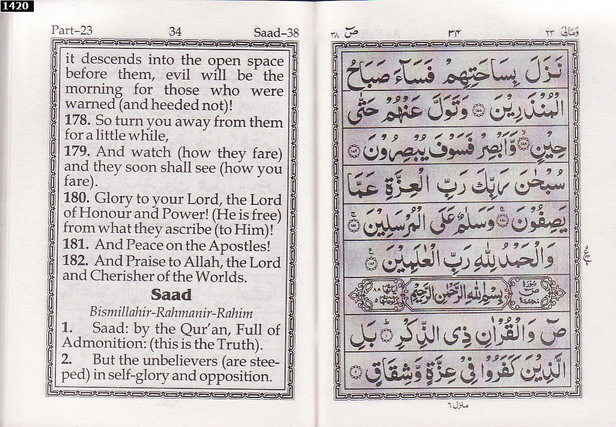 1420
Part–23 34 Saad–38
it descends into the open space
before them, evil will be the
morning for those who were
warned (and heeded not)!
178. So turn you away from them
for a little while,
179. And watch (how they fare)
and they soon shall see (how you
fare).
180. Glory to your Lord, the Lord
of Honour and Power! (He is free)
from what they ascribe (to Him)!
181. And Peace on the Apostles!
182. And Praise to Allah, the Lord
and Cherisher of the Worlds.
Saad
Bismillahir-Rahmanir-Rahim
1. Saad: by the Qur'an, Full of
Admonition: (this is the Truth).
2. But the unbelievers (are stee-
ped) in self-glory and opposition.
وَمَالِیَ ٢٣ ٣٤ صٓ ٣٨
نَزَلَ بِسَاحَتِهِمْ فَسَآءَ صَبَاحُ
الْمُنْذَرِيْنَ وَتَوَلَّ عَنْهُمْ حَتّٰى
حِيْنٍ وَّاَبْصِرْ فَسَوْفَ يُبْصِرُوْنَ
سُبْحٰنَ رَبِّكَ رَبِّ الْعِزَّةِ عَمَّا
يَصِفُوْنَ وَسَلٰمٌ عَلَى الْمُرْسَلِيْنَ
وَالْحَمْدُ لِلّٰهِ رَبِّ الْعٰلَمِيْنَ
بِسْمِ اللّٰهِ الرَّحْمٰنِ الرَّحِيْمِ
صٓ وَالْقُرْاٰنِ ذِى الذِّكْرِ بَلِ
الَّذِيْنَ كَفَرُوْا فِىْ عِزَّةٍ وَّشِقَاقٍ
منزل ٦